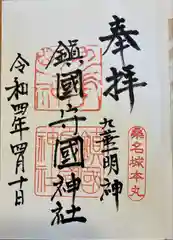 奉拝
桑名城本丸
九華明神
鎮國守國神社
令和四年四月十日